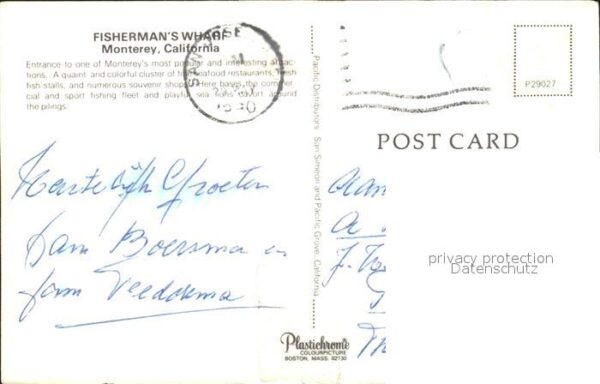 FISHERMAN'S WHARF
Monterey, California
Entrance to one of Monterey's most popular and interesting attrac-
tions. A quaint and colorful cluster of fine seafood restaurants, fresh
fish stalls, and numerous souvenir shops. Here bases the commer-
cial and sport fishing fleet and playful sea lions cavort around
the pilings.
SAN JOSE
Hartelijk Groeten
Fam Boersma en
fam
Pacific Distributors San Simeon and Pacific Grove, California
Plastichrome
COLOURPICTURE
BOSTON, MASS. 02130
P29027
POST CARD
Aan
A
J.
privacy protection
Datenschutz